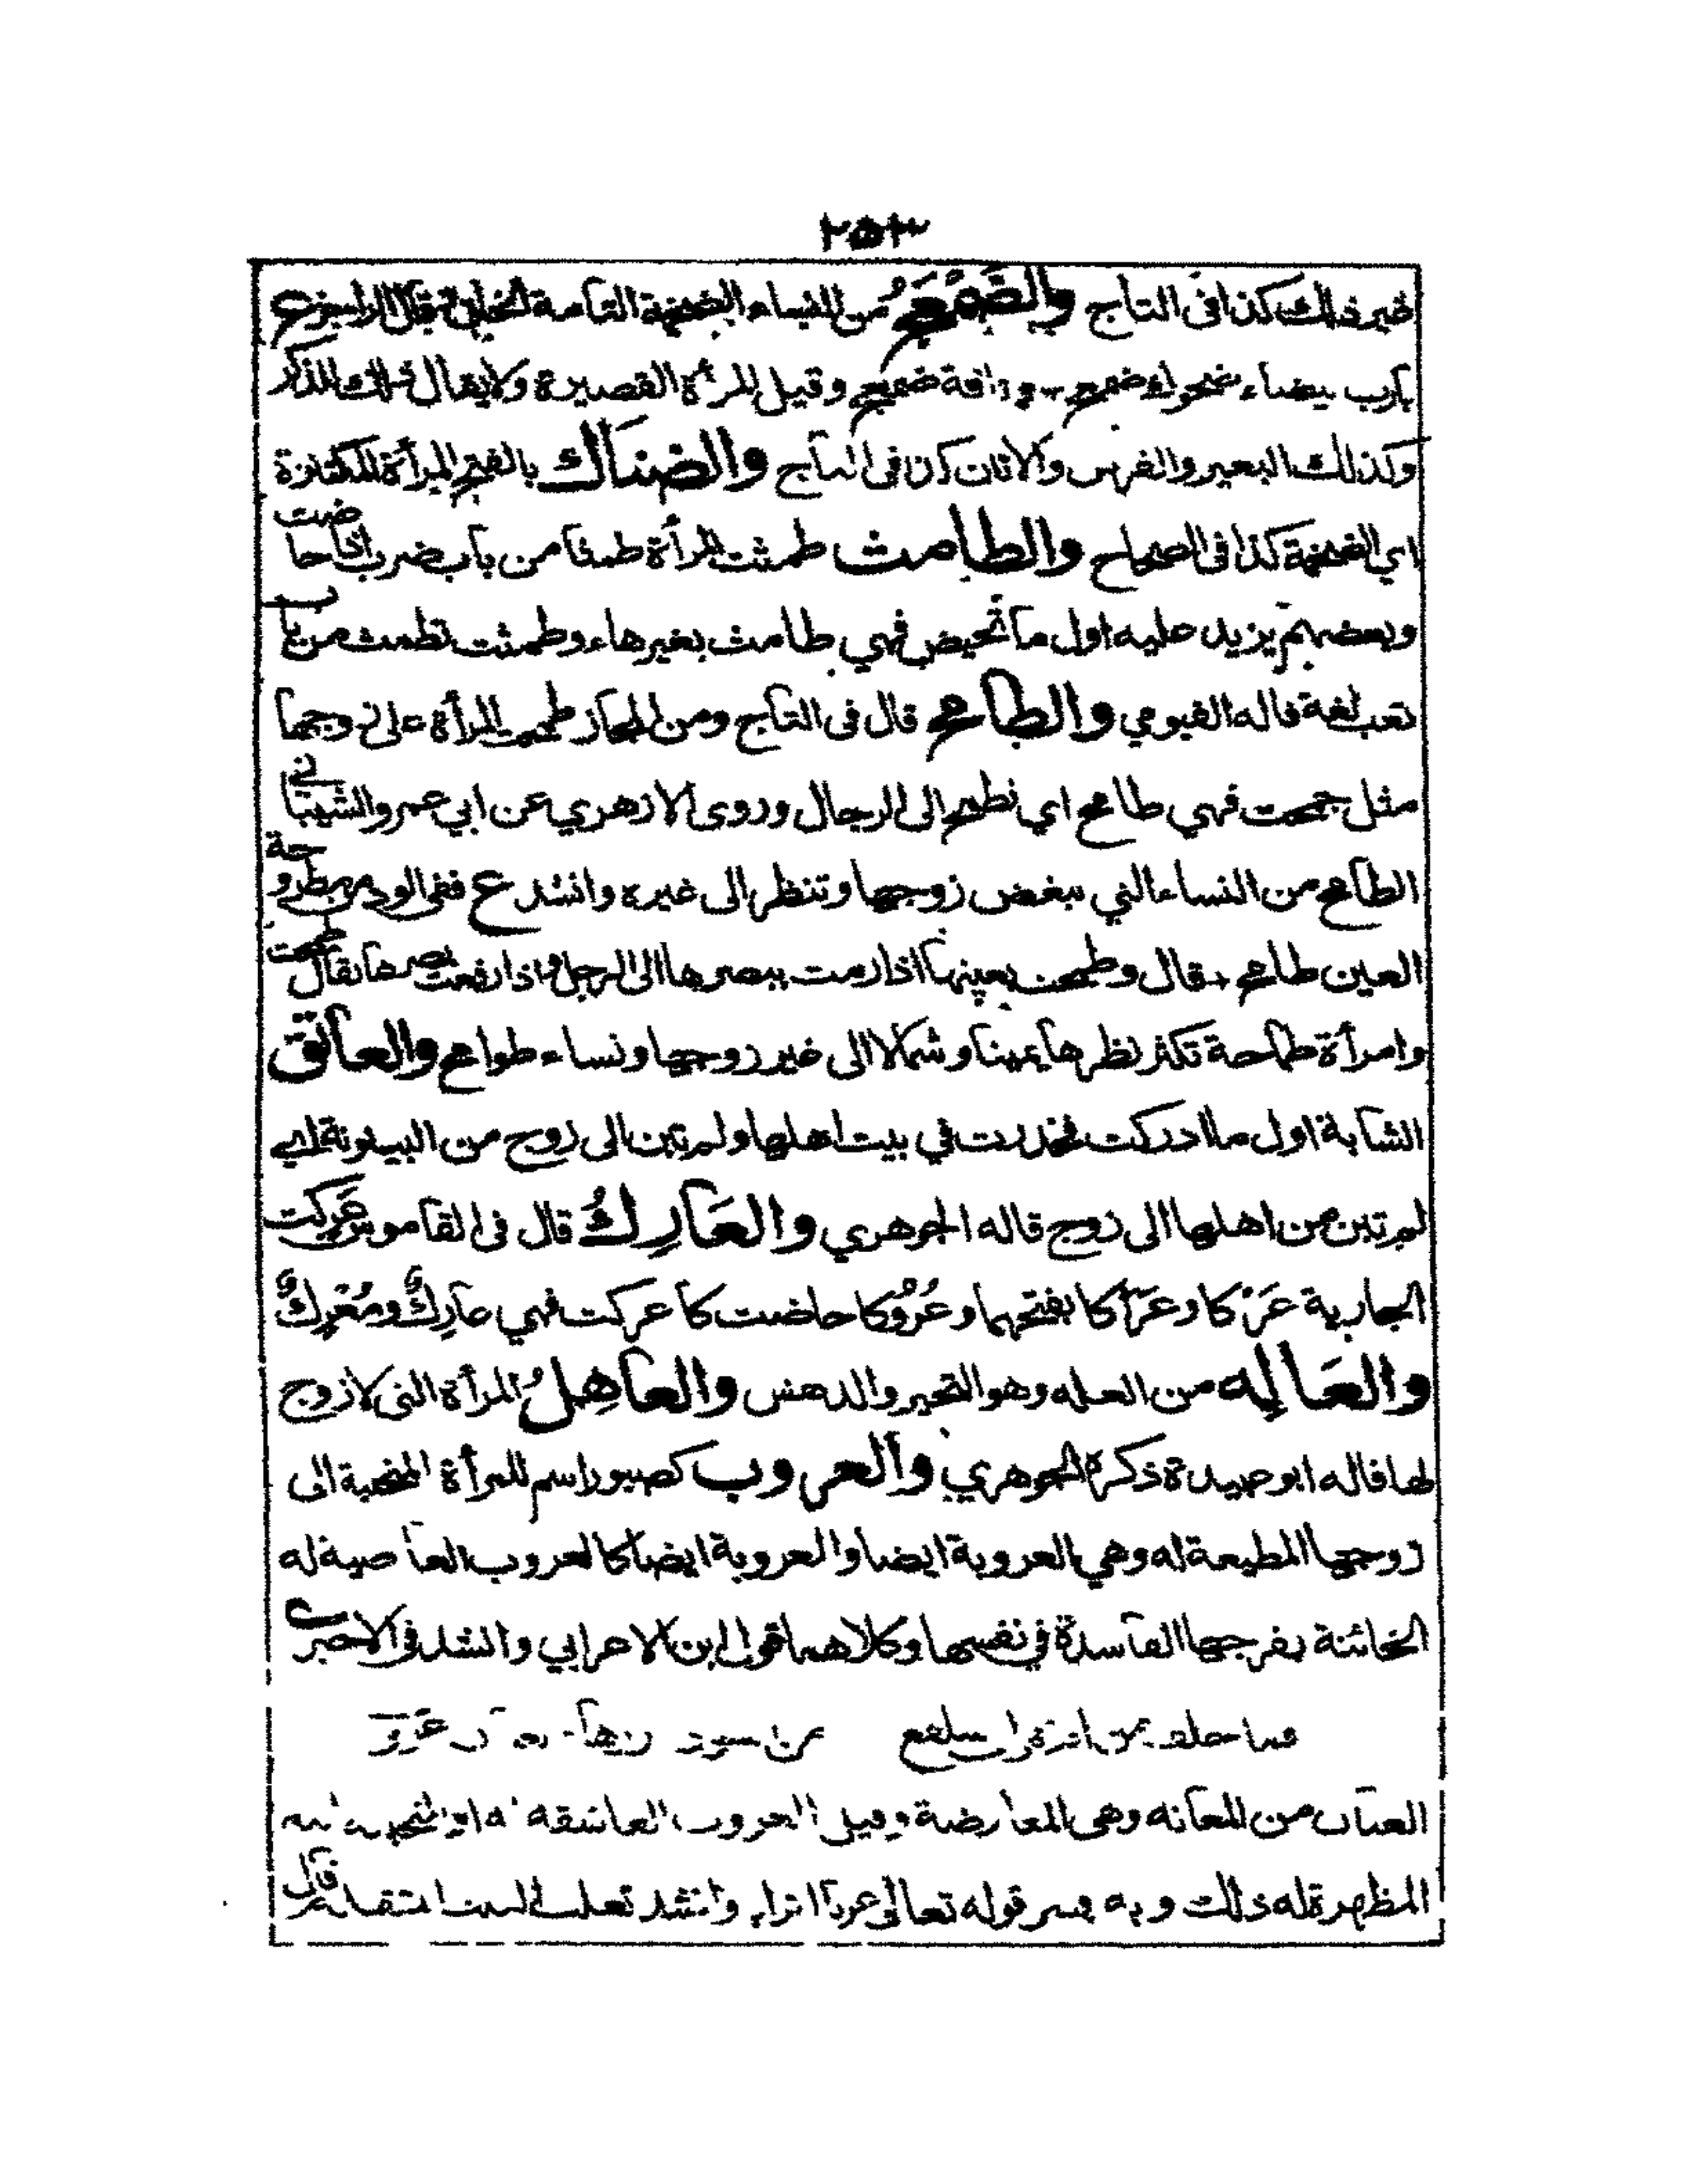 ٢٥٣
غير ذلك كذا فى التاج والضَّمْعَج من النساء الضخمة التامة الخلق قال الراجز ع
يارب بيضاء ضحوك ضمعج وناقة ضمعج وقيل المرأة القصيرة ولا يقال ذلك للذكر
وكذلك البعير والفرس والاتان كذا فى التاج والضنَاك بالفتح المرأة المكتنزة
اي الضخمة كذا فى الصحاح والطامث طمثت المرأة طمثا من باب ضرب اذا حاضت
وبعضهم يزيد عليه اول ما تحيض فهي طامث بغيرهاء وطمثت تطمث من باب
تعب لغة قاله الفيومي والطامح قال فى التاج ومن المجاز طمحت المرأة على زوجها
مثل جمحت فهي طامح اي تطمح الى الرجال وروى الازهري عن ابي عمرو الشيباني
الطامح من النساء التي تبغض زوجها وتنظر الى غيره وانشد ع ففى الود مطروحة
العين طامح وقال وطمحت بعينها اذا رمت ببصرها الى الرجل واذا رفعت بصرها يقال طمحت
وامرأة طماحة تكثر نظرها يمينا وشمالا الى غير زوجها ونساء طوامح والعاتق
الشابة اول ما ادركت فخدرت في بيت اهلها ولم تبن الى زوج من البينونة اي
لم تبن من اهلها الى زوج قاله الجوهري والعَارِكُ قال فى القاموس عَركت
الجارية عَرْكا وعَرَاكا بفتحهما وعُرُوكا حاضت كاعركت فهي عارِكٌ ومُعْرِكٌ
والعَالِه من العله وهو التحير والدهش والعاهِلُ المرأة التى لا زوج
لها قاله ابو عبيدة ذكره الجوهري والعروب كصبور اسم للمرأة المتحببة الى
زوجها المطيعة له وهي العروبة ايضا والعروبة ايضا كالعروب العاصية له
الخائنة بفرجها الفاسدة في نفسها وكلاهما قول ابن الاعرابي وانشد فى الاخير
فما خلف من ام سلفع من السود
العنان من المعانه وهى المعارضة وقيل العروب العاشقة له او المتحببة اليه
المظهرة له ذلك وبه فسر قوله تعالى عربا اترابا وانشد ثعلب